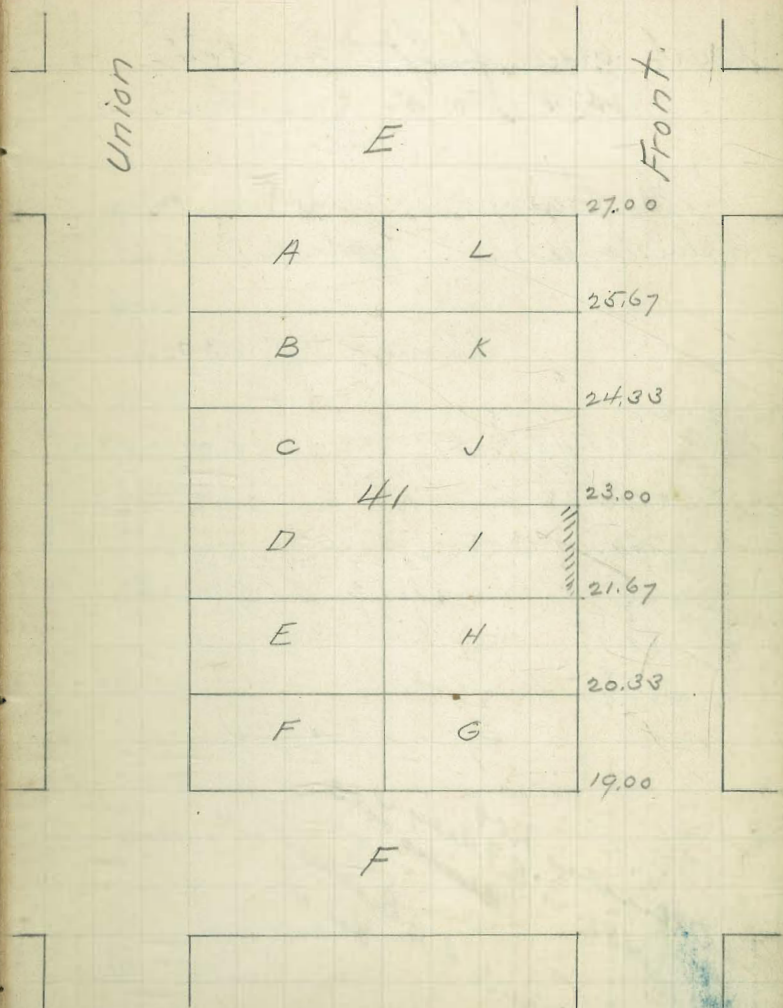 Union
Front.
E
27.00
A L
25.67
B K
24.33
C J
41
23.00
D I
21.67
E H
20.33
F G
19.00
F